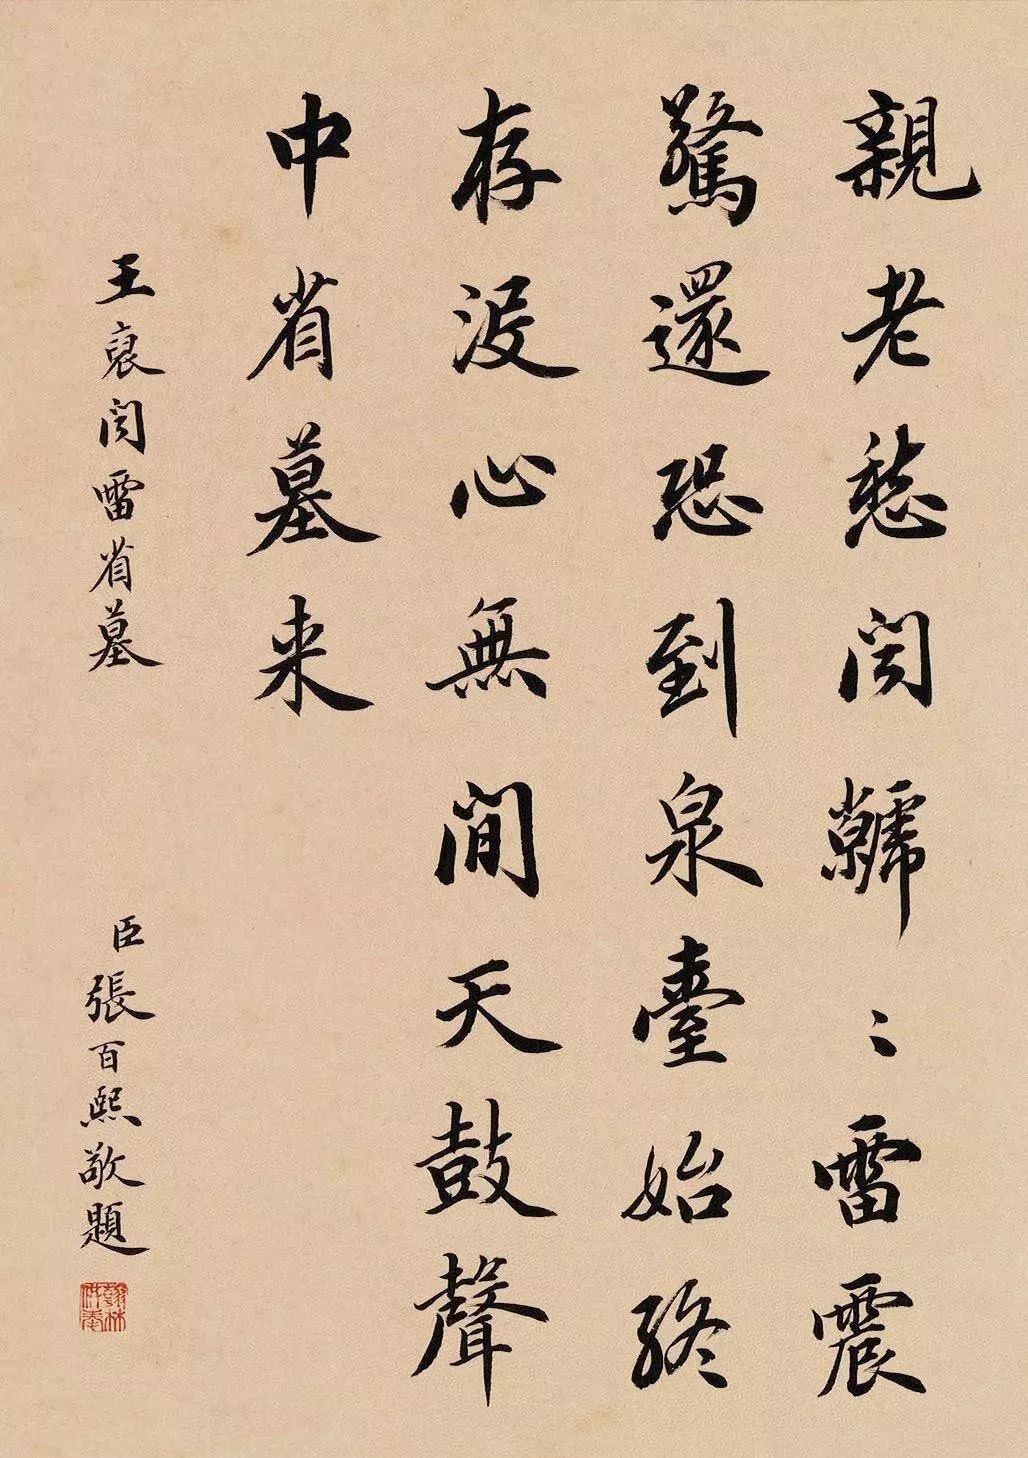 親老愁聞虩〻雷震
驚還恐到泉臺始終
存没心無間天鼓聲
中省墓来
王裒聞雷省墓
臣張百熙敬題
翰林供奉